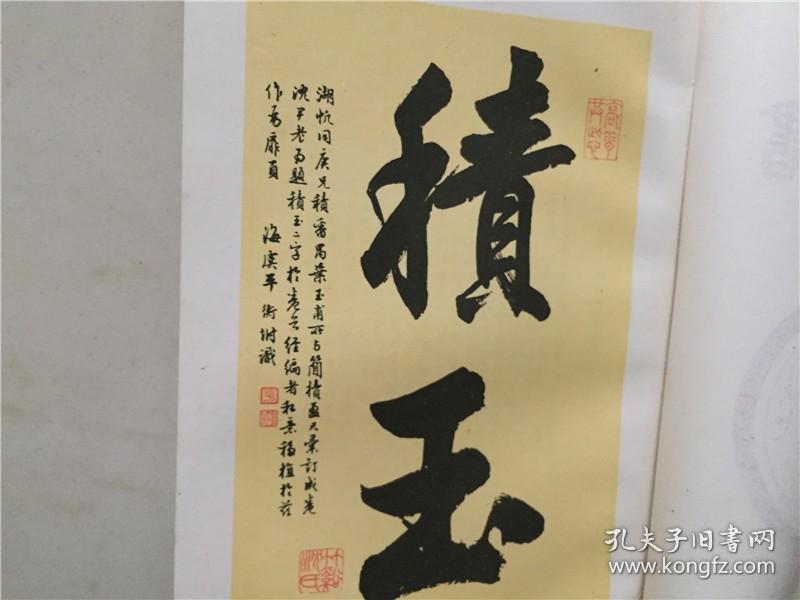 積玉
湖帆同庚兄積番禺葉玉甫所与簡牘盈尺彙訂成卷
沈尹老为題積玉二字於卷首経编者移植於茲
作为扉頁 海虞平衡坿識
竹谿沈氏
孔夫子旧书网
www.kongfz.com